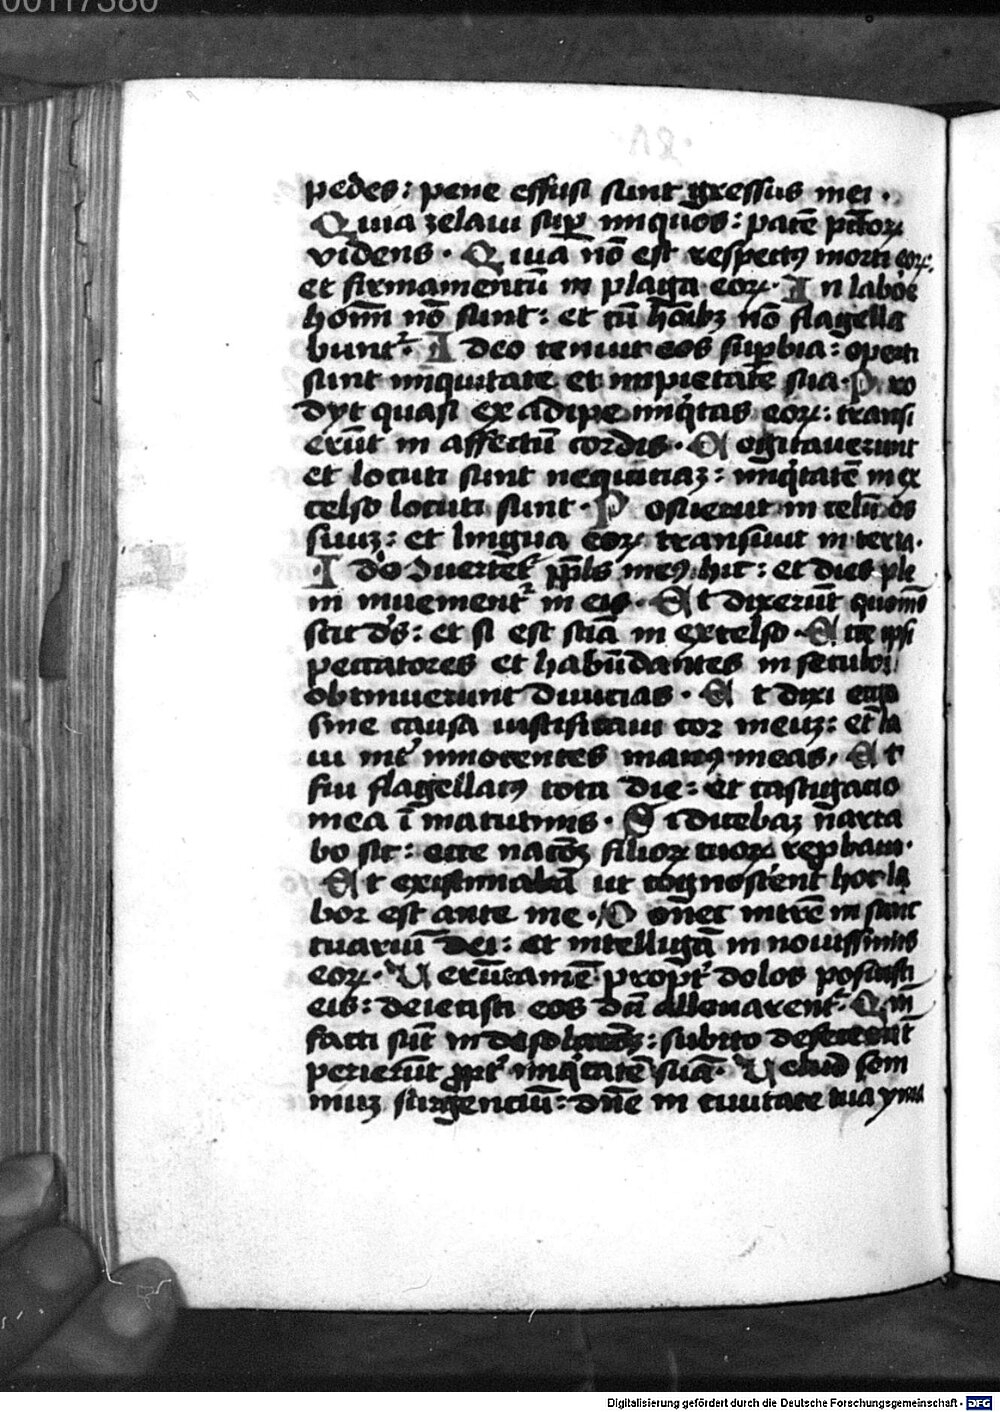 00117380
pedes: pene effusi sunt gressus mei.
Quia zelavi sup̄ iniquos: pacē pctoꝝ
videns. Quia nō est respectꝰ morti eoꝝ:
et firmamentū in plaga eoꝝ. In laboē
hoīm nō sunt: et cū hōibꝫ nō flagella
bunt᷑. Ideo tenuit eos suꝑbia: operti
sunt iniquitate et impietate sua. Pro
dyt quasi ex adipe iniq̇tas eoꝝ: transi
erūt in affectū cordis. Cogitaverunt
et locuti sunt nequitiaꝫ: iniq̇tatē in ex
celso locuti sunt. Posuerūt in celū os
suuꝫ: et lingua eoꝝ transivit in terra.
Ido ꝯvertet᷑ ppls meꝰ hic: et dies ple
ni invenient᷑ in eis. Et dixerūt quomō
scit ds̄: et si est sciā in excelso. Ecce ipsi
peccatores et habūdantes in seculo:
obtinuerunt divitias. Et dixi ergo
sine causa iustificavi cor meuꝫ: et la
vi int᷑ innocentes manꝰ meas. Et
fui flagellatꝰ tota die: et castigatio
mea ī matutinis. Si dicebaꝫ narra
bo sic: ecce natōꝫ filioꝝ tuoꝝ rep̄bavi.
Et existimabā ut cognoscent hoc la
bor est ante me. Donec intrē in sanc
tuariū dei: et intelligā in novissimis
eoꝝ. Verūtamē propt᷑ dolos posuisti
eis: deiecisti eos dū allevarent᷑. Quō
facti sūt in desolatōꝫ: subito defecerūt
perierūt ꝓpt᷑ iniq̇tatē suā. Velud som
niuꝫ surgenciū: dn̄e in civitate tua ymā
Digitalisierung gefördert durch die Deutsche Forschungsgemeinschaft - DFG